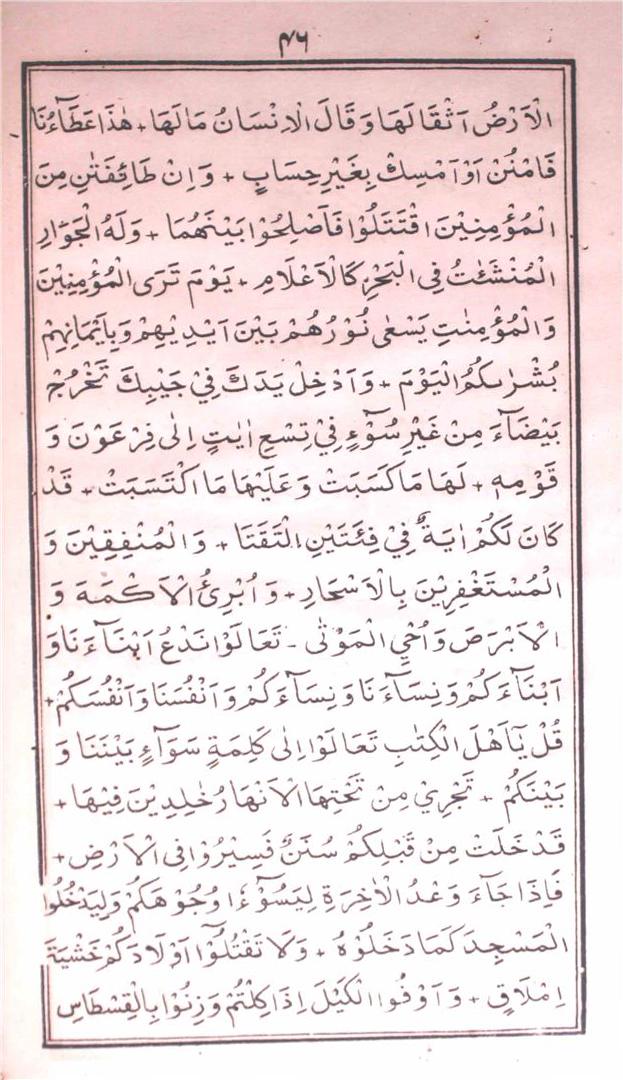 ۴۶
الْاَرْضُ اَثْقَالَهَا وَقَالَ الْاِنْسَانُ مَالَهَا + هٰذَا عَطَآءُنَا
فَامْنُنْ اَوْ اَمْسِكْ بِغَيْرِ حِسَابٍ + وَاِنْ طَائِفَتٰنِ مِنَ
الْمُؤْمِنِيْنَ اقْتَتَلُوْا فَاَصْلِحُوْا بَيْنَهُمَا + وَلَهُ الْجَوَارِ
الْمُنْشَئٰتُ فِى الْبَحْرِ كَالْاَعْلَامِ + يَوْمَ تَرَى الْمُؤْمِنِيْنَ
وَالْمُؤْمِنٰتِ يَسْعٰى نُوْرُهُمْ بَيْنَ اَيْدِيْهِمْ وَبِاَيْمَانِهِمْ
بُشْرٰىكُمُ الْيَوْمَ + وَاَدْخِلْ يَدَكَ فِيْ جَيْبِكَ تَخْرُجْ
بَيْضَآءَ مِنْ غَيْرِ سُوْٓءٍ فِيْ تِسْعِ اٰيٰتٍ اِلٰى فِرْعَوْنَ وَ
قَوْمِهٖ + لَهَا مَا كَسَبَتْ وَعَلَيْهَا مَا اكْتَسَبَتْ + قَدْ
كَانَ لَكُمْ اٰيَةٌ فِيْ فِئَتَيْنِ الْتَقَتَا + وَالْمُنْفِقِيْنَ وَ
الْمُسْتَغْفِرِيْنَ بِالْاَسْحَارِ + وَاُبْرِئُ الْاَكْمَهَ وَ
الْاَبْرَصَ وَاُحْيِ الْمَوْتٰى - تَعَالَوْا نَدْعُ اَبْنَآءَنَا وَ
اَبْنَآءَكُمْ وَنِسَآءَنَا وَنِسَآءَكُمْ وَاَنْفُسَنَا وَاَنْفُسَكُمْ +
قُلْ يٰٓاَهْلَ الْكِتٰبِ تَعَالَوْا اِلٰى كَلِمَةٍ سَوَآءٍ بَيْنَنَا وَ
بَيْنَكُمْ + تَجْرِيْ مِنْ تَحْتِهَا الْاَنْهَارُ خٰلِدِيْنَ فِيْهَا +
قَدْ خَلَتْ مِنْ قَبْلِكُمْ سُنَنٌ فَسِيْرُوْا فِى الْاَرْضِ +
فَاِذَا جَآءَ وَعْدُ الْاٰخِرَةِ لِيَسُوْٓءٗا وُجُوْهَكُمْ وَلِيَدْخُلُوا
الْمَسْجِدَ كَمَا دَخَلُوْهُ + وَلَا تَقْتُلُوْٓا اَوْلَادَكُمْ خَشْيَةَ
اِمْلَاقٍ + وَاَوْفُوا الْكَيْلَ اِذَا كِلْتُمْ وَزِنُوْا بِالْقِسْطَاسِ